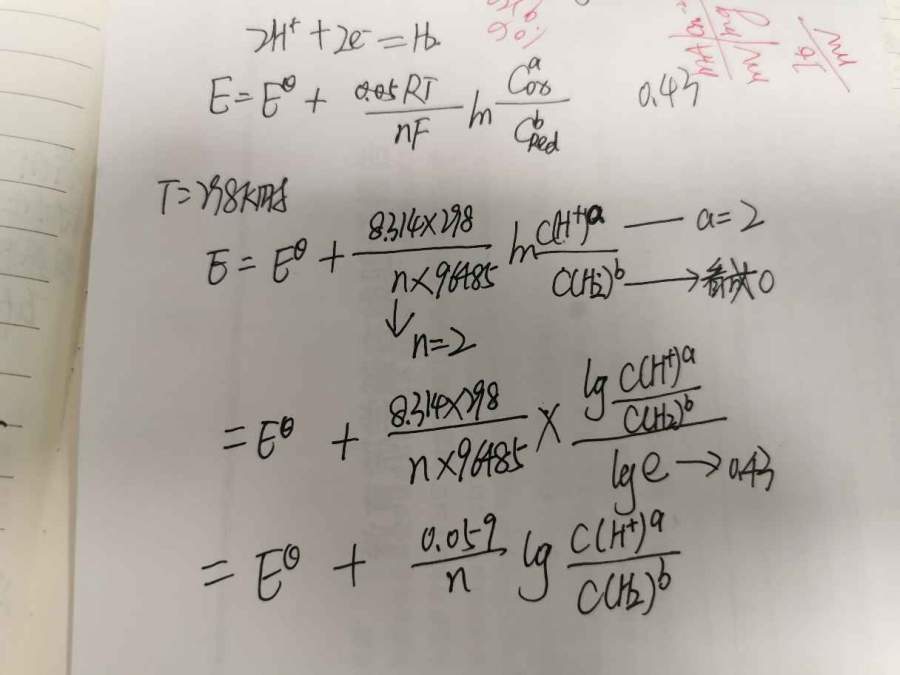 2H⁺ + 2e⁻ = H₂
E = E^θ + 0.05RT/nF ln C_ox^a/C_Red^b 0.43
T=298K时
E = E^θ + 8.314×298/n×96485 ln C(H⁺)^a/C(H₂)^b — a=2 → 看成0
↓ n=2
= E^θ + 8.314×298/n×96485 × lg C(H⁺)^a/C(H₂)^b/lg e → 0.43
= E^θ + 0.059/n lg C(H⁺)^a/C(H₂)^b